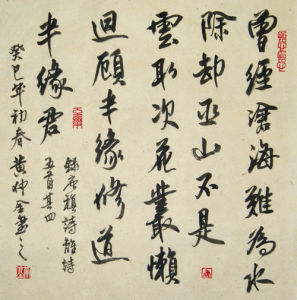 曾經滄海難為水
除却巫山不是
雲取次花叢懶
迴顧半緣修道
半緣君
錄唐稹詩離詩
五首其四
癸巳年初春黄仲金書之